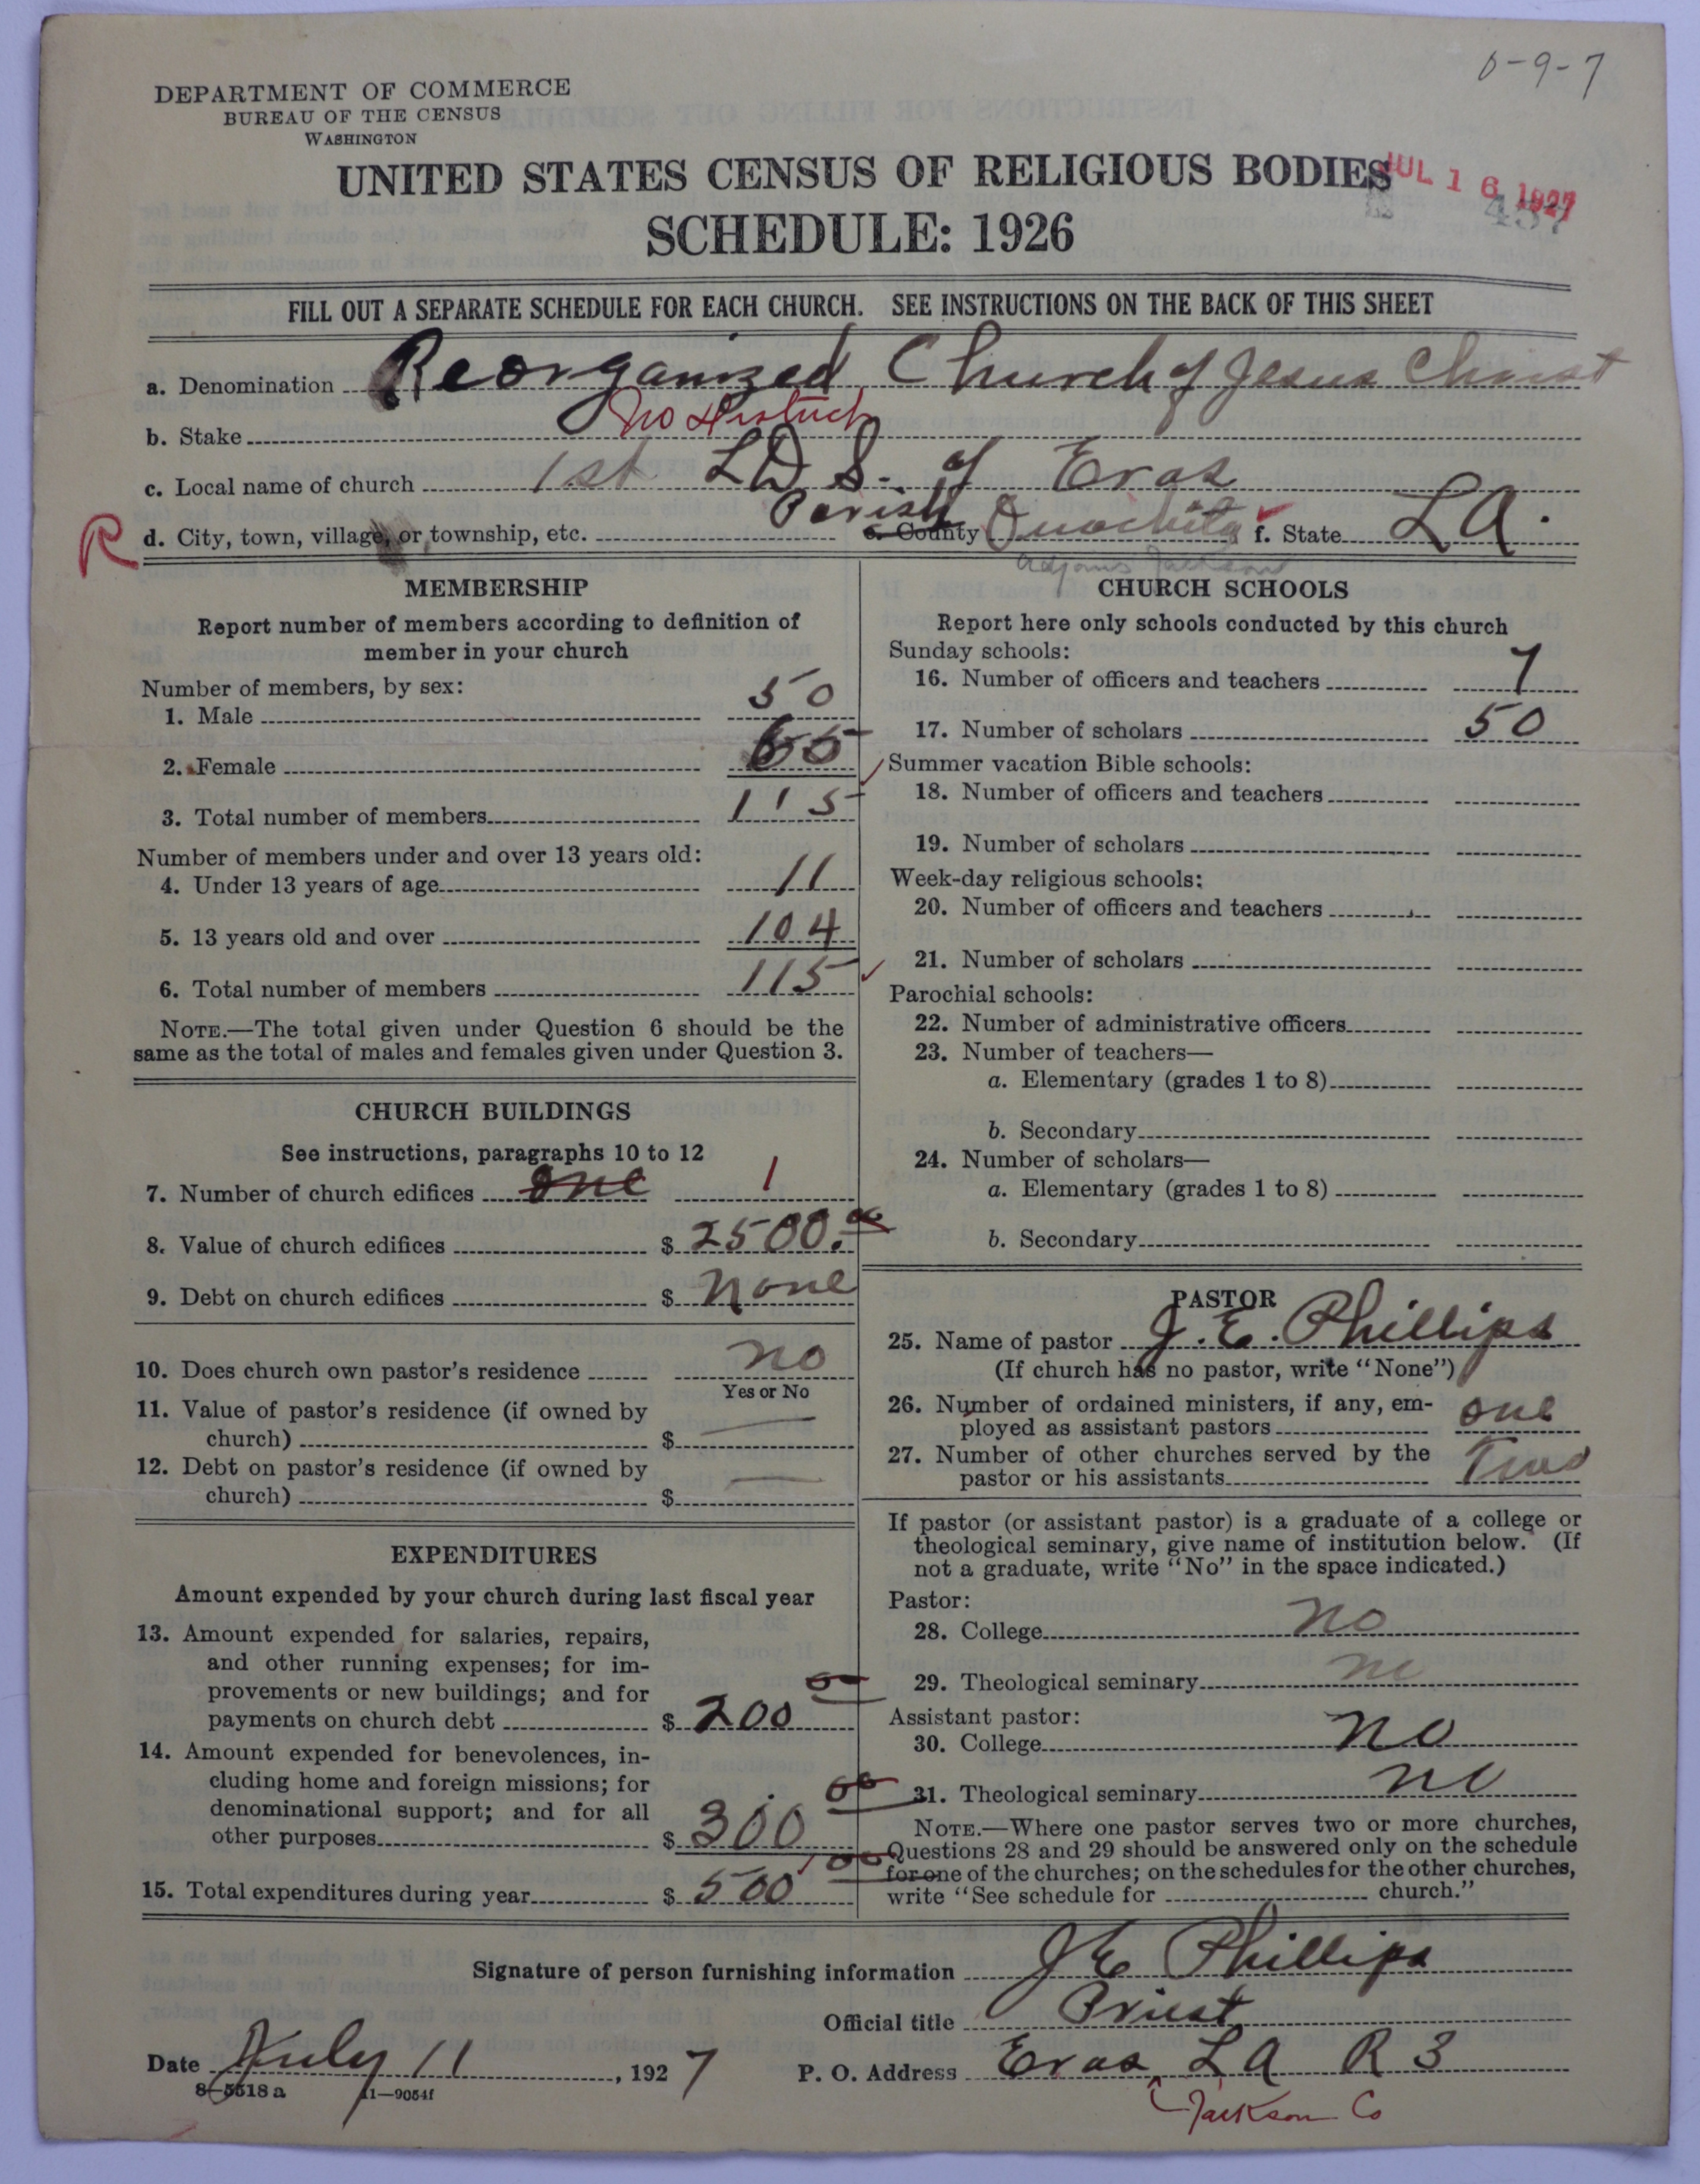 6-9-7
DEPARTMENT OF COMMERCE
BUREAU OF THE CENSUS
WASHINGTON
UNITED STATES CENSUS OF RELIGIOUS BODIES
JUL 16 1927
SCHEDULE: 1926
FILL OUT A SEPARATE SCHEDULE FOR EACH CHURCH. SEE INSTRUCTIONS ON THE BACK OF THIS SHEET
a. Denomination Reorganized Church of Jesus Christ
b. Stake No District
c. Local name of church 1st L D S. of Eros
R d. City, town, village, or township, etc. Parish e. County Ouachita f. State LA.
adjoins Jackson
MEMBERSHIP
Report number of members according to definition of
member in your church
Number of members, by sex:
1. Male 50
2. Female 65
3. Total number of members 115
Number of members under and over 13 years old:
4. Under 13 years of age 11
5. 13 years old and over 104
6. Total number of members 115
NOTE.—The total given under Question 6 should be the
same as the total of males and females given under Question 3.
CHURCH BUILDINGS
See instructions, paragraphs 10 to 12
7. Number of church edifices one 1
8. Value of church edifices $ 2500.00
9. Debt on church edifices $ None
10. Does church own pastor's residence no
Yes or No
11. Value of pastor's residence (if owned by
church) $ —
12. Debt on pastor's residence (if owned by
church) $ —
EXPENDITURES
Amount expended by your church during last fiscal year
13. Amount expended for salaries, repairs,
and other running expenses; for im-
provements or new buildings; and for
payments on church debt $ 200 00
14. Amount expended for benevolences, in-
cluding home and foreign missions; for
denominational support; and for all
other purposes $ 300 00
15. Total expenditures during year $ 500 00
CHURCH SCHOOLS
Report here only schools conducted by this church
Sunday schools:
16. Number of officers and teachers 7
17. Number of scholars 50
Summer vacation Bible schools:
18. Number of officers and teachers
19. Number of scholars
Week-day religious schools:
20. Number of officers and teachers
21. Number of scholars
Parochial schools:
22. Number of administrative officers
23. Number of teachers—
a. Elementary (grades 1 to 8)
b. Secondary
24. Number of scholars—
a. Elementary (grades 1 to 8)
b. Secondary
PASTOR
25. Name of pastor J. E. Phillips
(If church has no pastor, write "None")
26. Number of ordained ministers, if any, em-
ployed as assistant pastors one
27. Number of other churches served by the
pastor or his assistants Two
If pastor (or assistant pastor) is a graduate of a college or
theological seminary, give name of institution below. (If
not a graduate, write "No" in the space indicated.)
Pastor:
28. College no
29. Theological seminary no
Assistant pastor:
30. College no
31. Theological seminary no
NOTE.—Where one pastor serves two or more churches,
Questions 28 and 29 should be answered only on the schedule
for one of the churches; on the schedules for the other churches,
write "See schedule for church."
Signature of person furnishing information J E Phillips
Official title Priest
Date July 11, 1927 P. O. Address Eros LA R 3
8-5518 a 11-9054f
Jackson Co